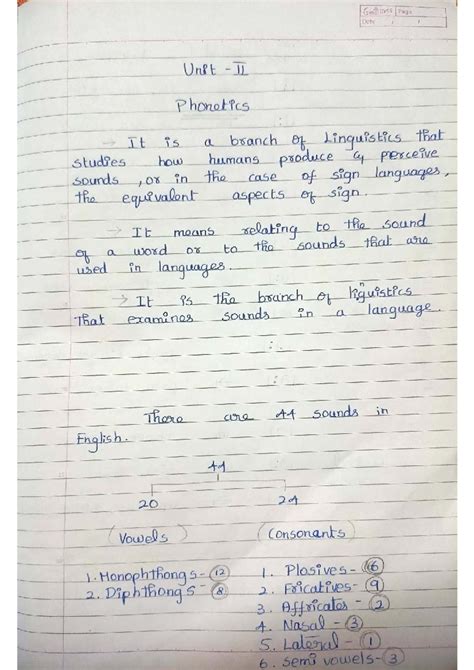 Page
Date
Unit - II
Phonetics
→ It is a branch of Linguistics that
studies how humans produce & perceive
sounds, or in the case of sign languages,
the equivalent aspects of sign.
→ It means relating to the sound
of a word or to the sounds that are
used in languages.
→ It is the branch of liguistics
n
that examines sounds in a language.
There are 44 sounds in
English.
44
20 24
(Vowels) (Consonants)
1. Monophthongs - 12 1. Plosives - 6
2. Diphthongs - 8 2. Fricatives - 9
3. Affricates - 2
4. Nasal - 3
5. Lateral - 1
6. Semi vowels - 3